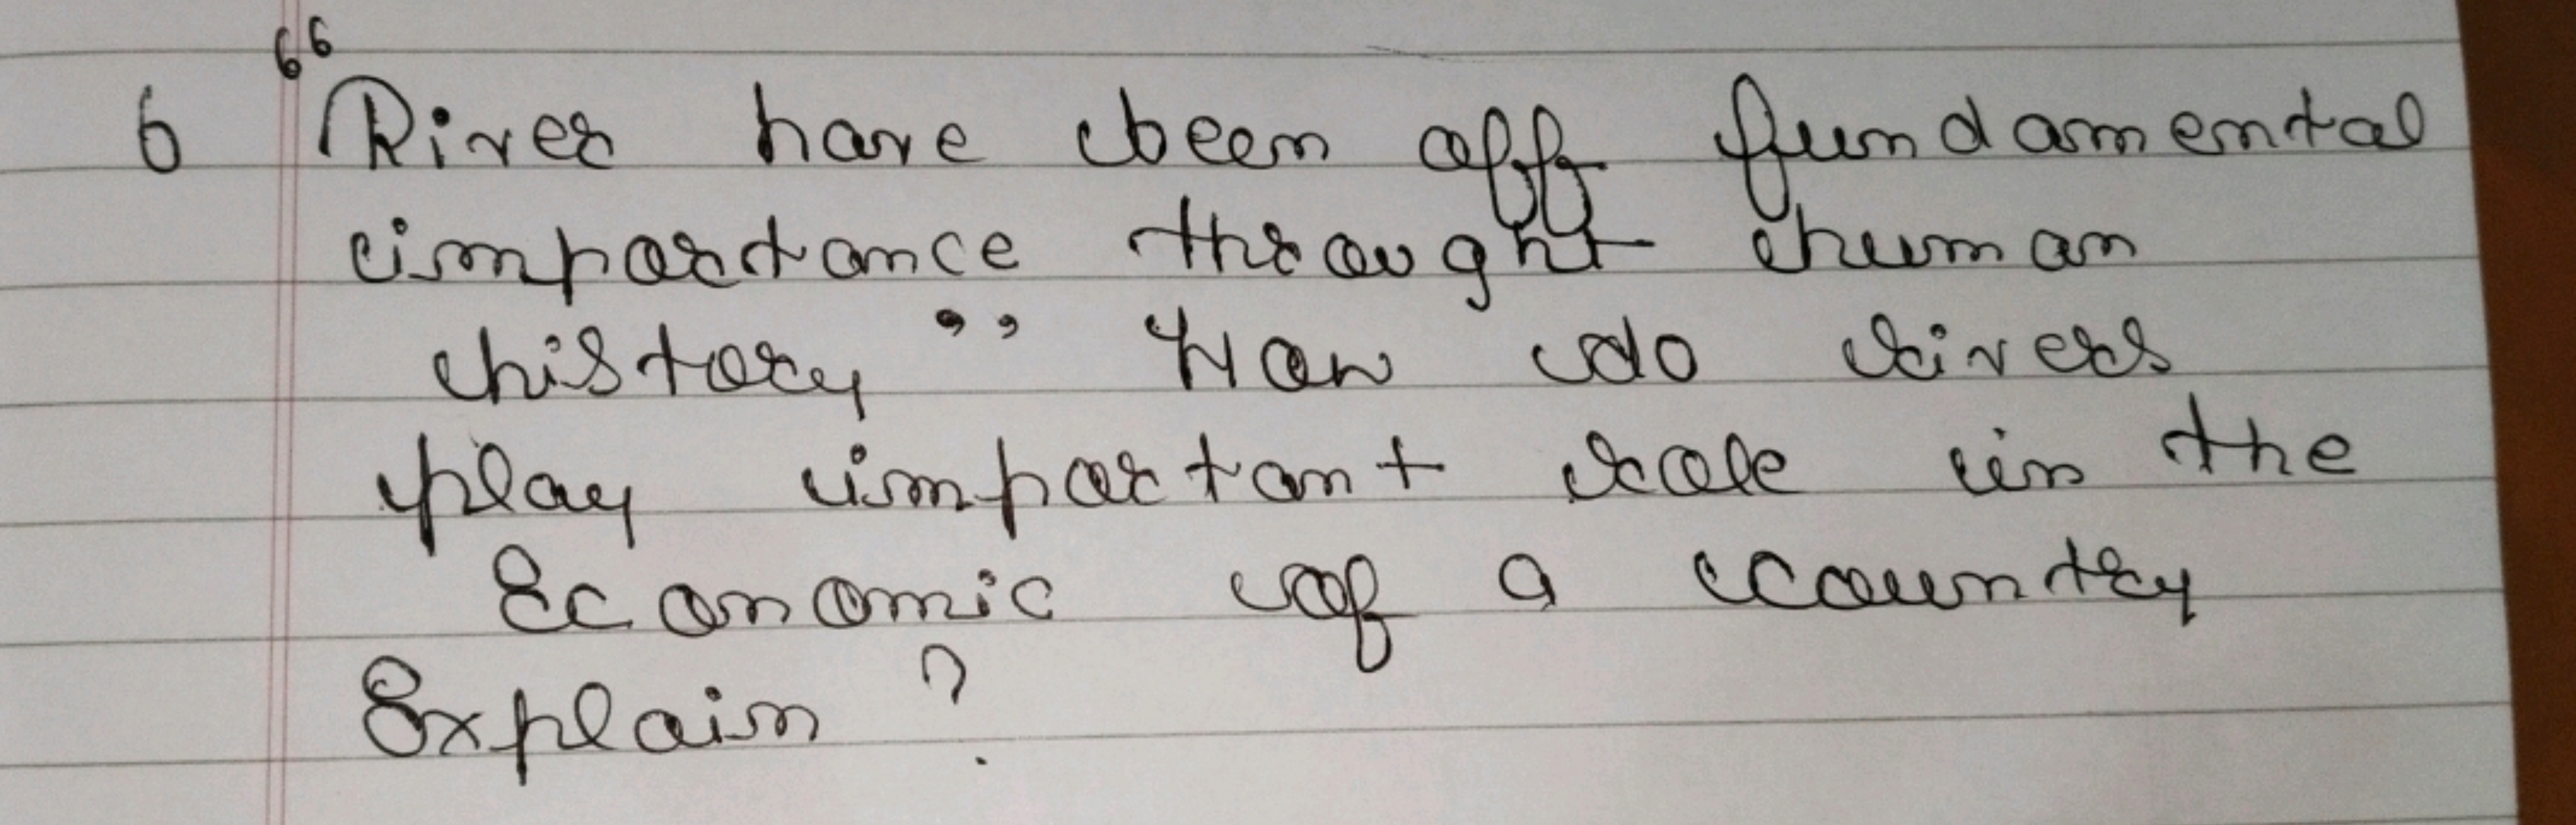 6 “River have been off fundamental
importance throught human
history” How do rivers
play important role in the
Economic of a country
Explain?